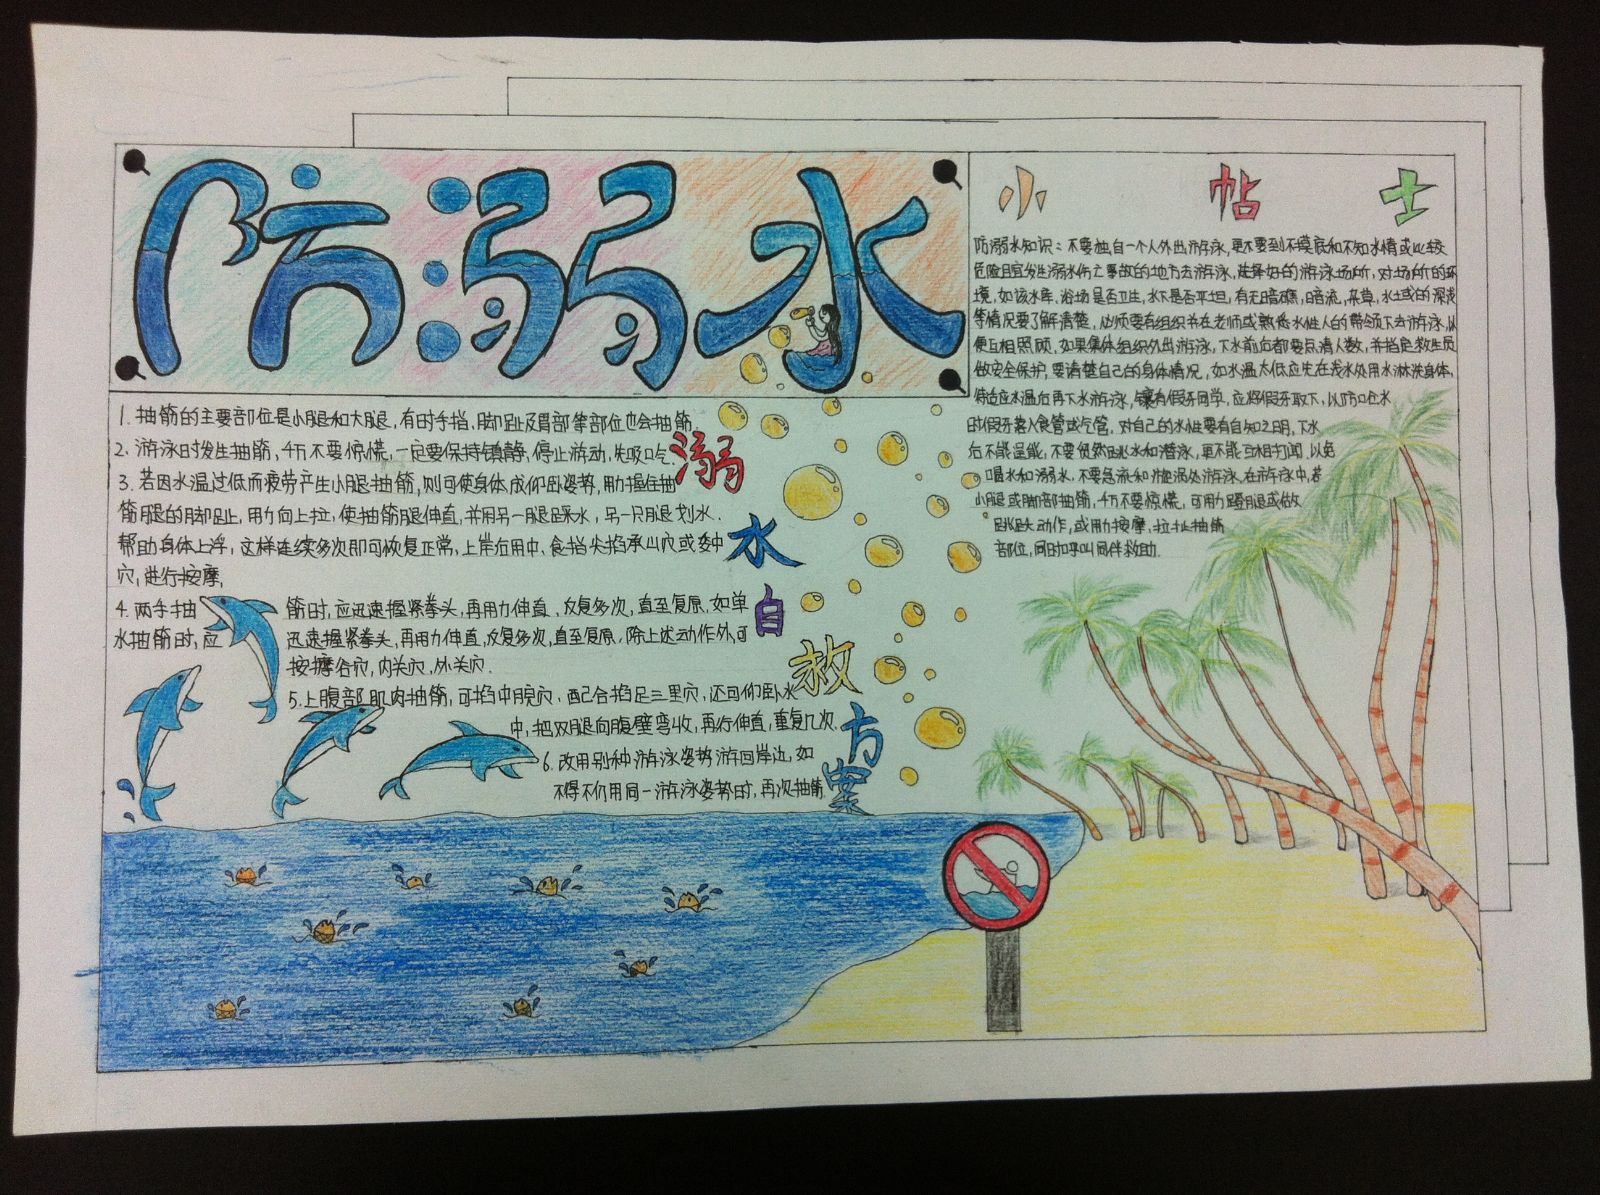 防溺水
1. 抽筋的主要部位是小腿和大腿, 有时手指, 脚趾及胃部等部位也会抽筋.
2. 游泳时发生抽筋, 千万不要惊慌, 一定要保持镇静, 停止游动, 先吸口气,
3. 若因水温过低而疲劳产生小腿抽筋, 则可使身体成仰卧姿势, 用力握住抽
筋腿的脚趾, 用力向上拉, 使抽筋腿伸直, 并用另一腿踩水, 另一只腿划水.
帮助身体上浮, 这样连续多次即可恢复正常, 上岸后用中、食指尖掐承山穴或委中
穴, 进行按摩,
4. 两手抽筋时, 应迅速握紧拳头, 再用力伸直, 反复多次, 直至复原, 如单
水抽筋时, 应迅速握紧拳头, 再用力伸直, 反复多次, 直至复原, 除上述动作外, 可
按摩合谷穴, 内关穴, 外关穴.
5. 上腹部肌肉抽筋, 可掐中脘穴, 配合掐足三里穴, 还可仰卧水
中, 把双腿向腹壁弯收, 再行伸直, 重复几次.
6. 改用别种游泳姿势游回岸边, 如
不得不仍用同一游泳姿势时, 再次抽筋
溺水自救方案
小帖士
防溺水知识: 不要独自一个人外出游泳, 更不要到不摸底和不知水情或比较
危险且宜发生溺水伤亡事故的地方去游泳, 选择好的游泳场所, 对场所的环
境, 如该水库、浴场是否卫生, 水下是否平坦, 有无暗礁, 暗流, 杂草, 水域的深浅
等情况要了解清楚, 必须要有组织并在老师或熟悉水性人的带领下去游泳, 以
便互相照顾, 如果集体组织外出游泳, 下水前后都要点清人数, 并指定救生员
做安全保护, 要清楚自己的身体情况, 如水温太低应先在浅水处用水淋洗身体,
待适应水温后再下水游泳, 镶有假牙同学, 应将假牙取下, 以防呛水
时假牙落入食管或气管, 对自己的水性要有自知之明, 下水
后不能逞能, 不要贸然跳水和潜泳, 更不能互相打闹, 以免
喝水和溺水, 不要急流和漩涡处游泳, 在游泳中, 若
小腿或脚部抽筋, 千万不要惊慌, 可用力蹬腿或做
跳跃动作, 或用力按摩, 拉扯抽筋
部位, 同时呼叫同伴救助.